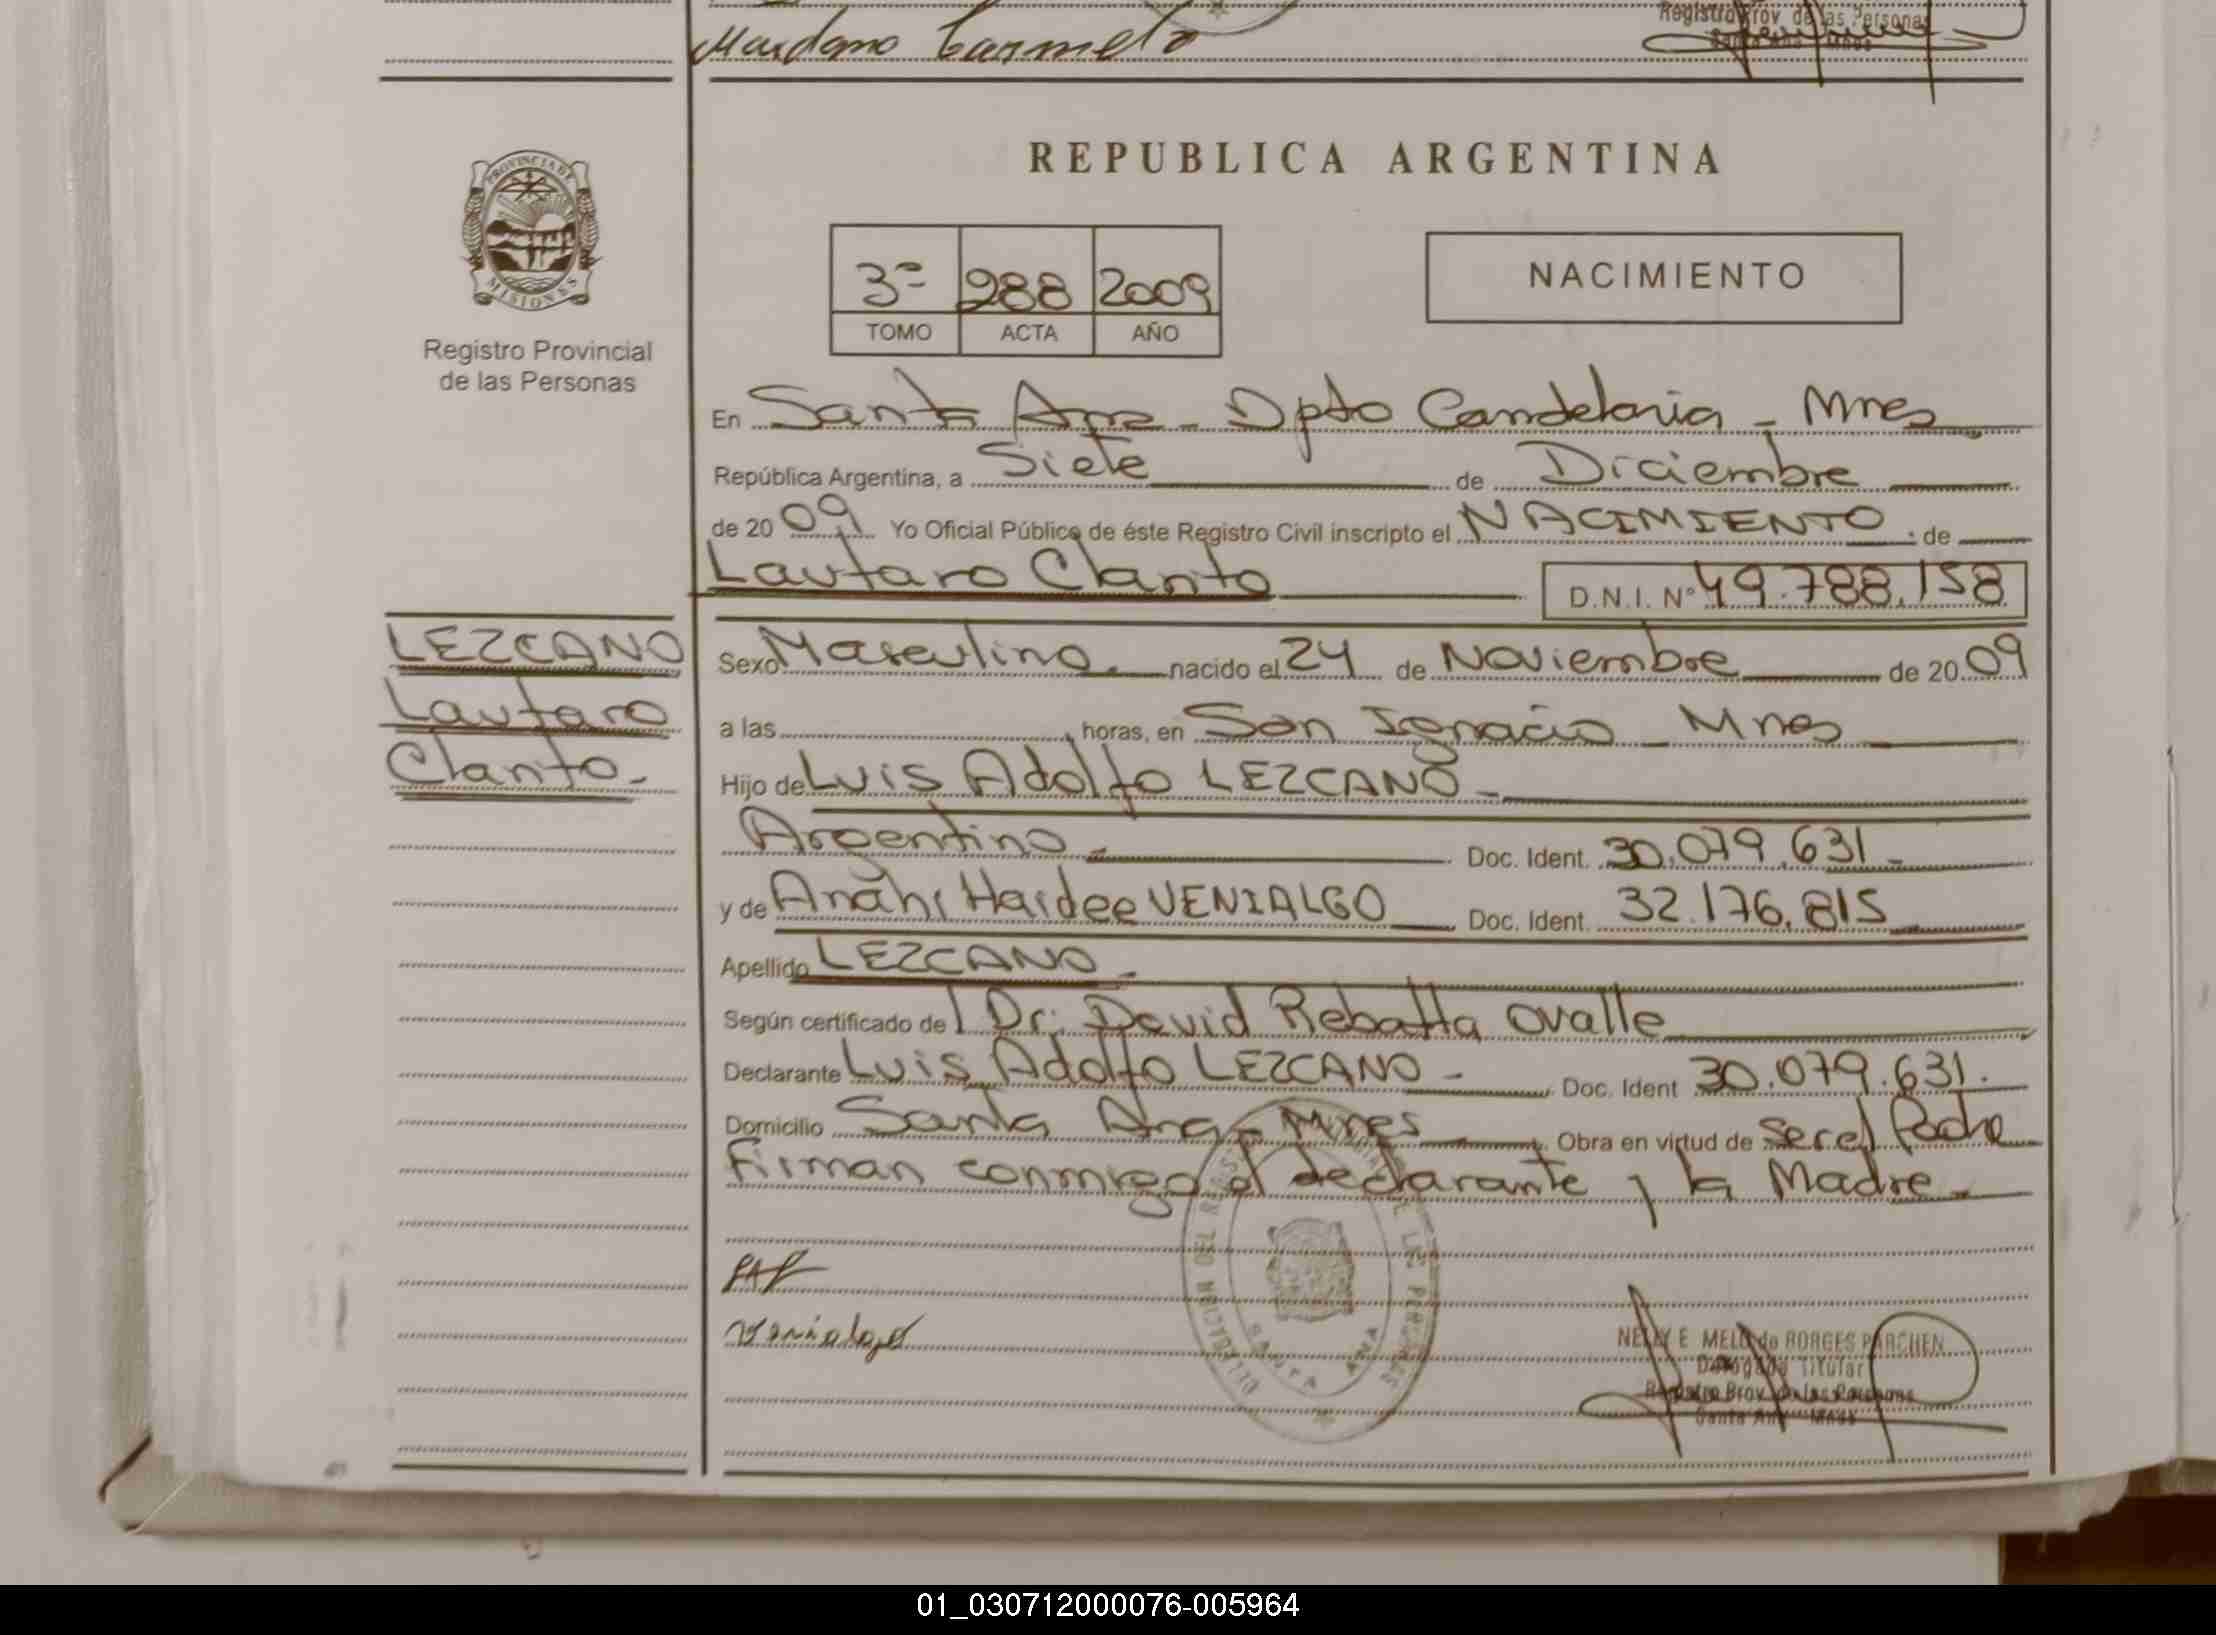 Mardono Carmelo
Registro Prov. de las Personas
Santa Ana Mnes
REPUBLICA ARGENTINA
PROVINCIA DE
MISIONES
Registro Provincial
de las Personas
3= 288 2009
TOMO ACTA AÑO
NACIMIENTO
En Santa Ana - Dpto Candelaria - Mnes
República Argentina, a Siete de Diciembre
de 2009 Yo Oficial Público de éste Registro Civil inscripto el NACIMIENTO de
Lautaro Clanto D.N.I. Nº 49.788.158
LEZCANO
Lautaro
Clanto-
Sexo Masculino nacido el 24 de Noviembre de 2009
a las horas, en San Ignacio - Mnes
Hijo de Luis Adolfo LEZCANO -
Argentino - Doc. Ident. 30.079.631 -
y de Anahi Haidee VENIALGO Doc. Ident. 32.176.815
Apellido LEZCANO -
Según certificado del Dr. David Rebatta Ovalle
Declarante Luis Adolfo LEZCANO - Doc. Ident 30.079.631.
Domicilio Santa Ana - Mnes Obra en virtud de ser el Padre
Firman conmigo el declarante y la Madre -
Venialgo
DELEGACION DEL REGISTRO PROVINCIAL DE LAS PERSONAS
SANTA ANA
NELLY E. MELO de BORGES PARCHEN
Delegada Titular
Registro Prov. de las Personas
Santa Ana - Mnes
01_030712000076-005964